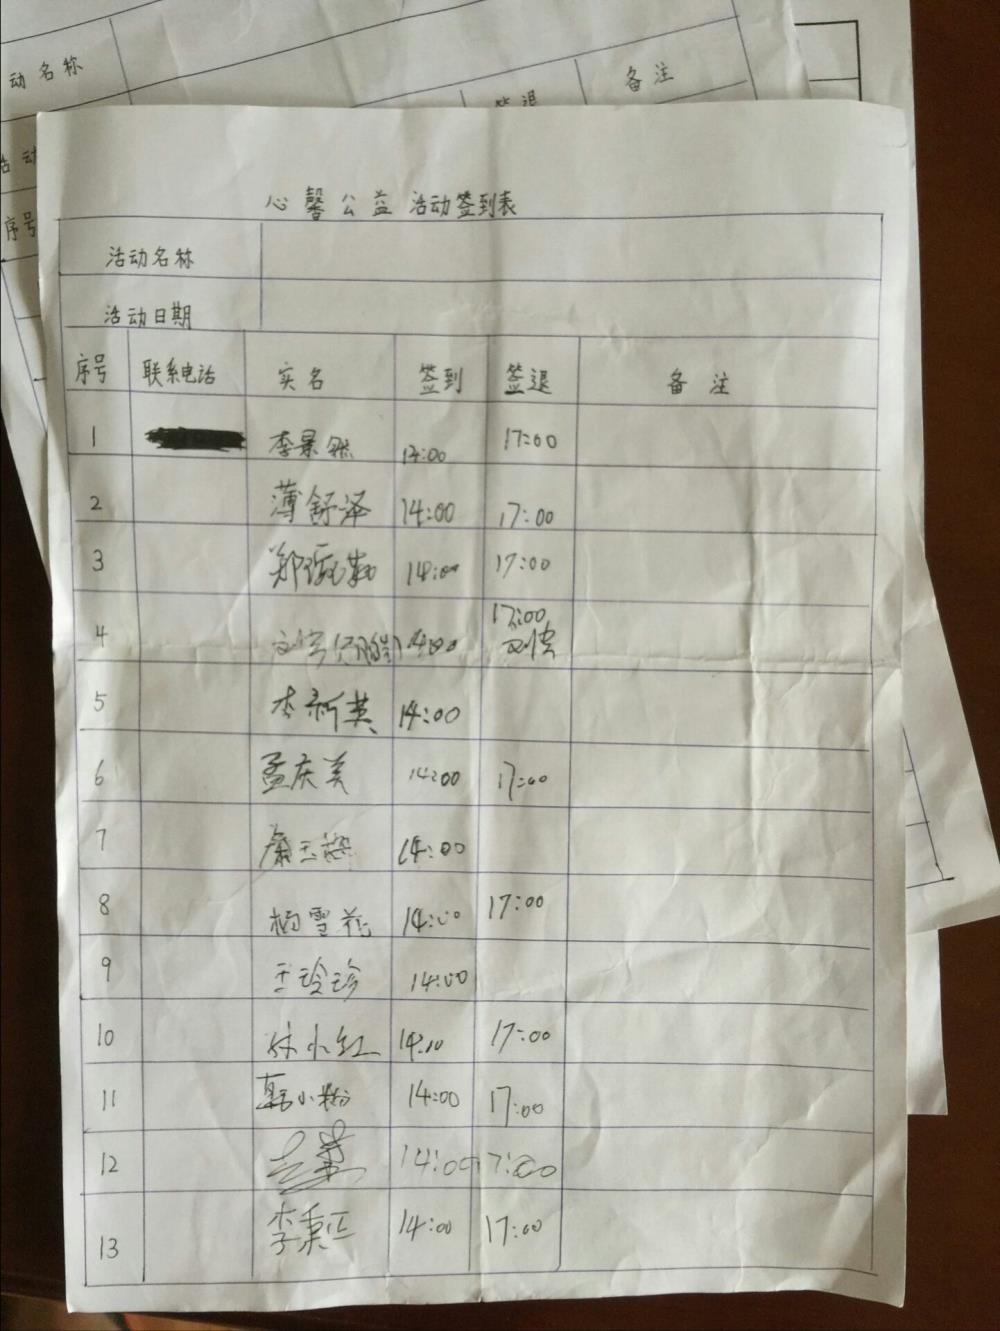 动名称
备注
签退
活动
序号
心馨公益活动签到表
活动名称
活动日期
序号 联系电话 实名 签到 签退 备注
1 李景 13:00 17:00
2 薄舒泽 14:00 17:00
3 郑 14:00 17:00
4 14:00 17:00
5 李新英 14:00
6 孟庆美 14:00 17:00
7 14:00
8 杨雪花 14:00 17:00
9 王玲珍 14:00
10 林小红 14:10 17:00
11 韩小粉 14:00 17:00
12 14:00 17:00
13 李秉正 14:00 17:00